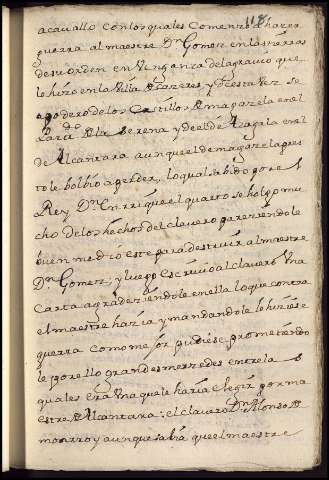 118
acavallo con los quales Comenzo A hazer
guerra al maestre Dn Gomez en las tierras
de su orden en Venganza del agravio que
le hizo en la Villa de Cazeres y desta Vez se
apodero de los Castillos de magazela en el
Part do de la Serena y de el de Azagala en el
de Alcantara aunque el de magazela pres
to le bolbio a perder, lo qual sabido por el
Rey Dn Enrrique el quarto se holgo mu
cho de los hechos del clavero pareziendole
buen medio este para destruir al maestre
Dn Gomez; y luego escrivio al clavero Una
Carta agradeziendole en ella lo que contra
el maestre hazia y mandandole le hiziese
guerra como mejor pudiese prometiendo
le por ello grandes merzedes entre las
quales era Una que le haria elegir por ma
estre de Alcantara: el clavero Dn Alonso de
monrroy aunque sabia que el maestre